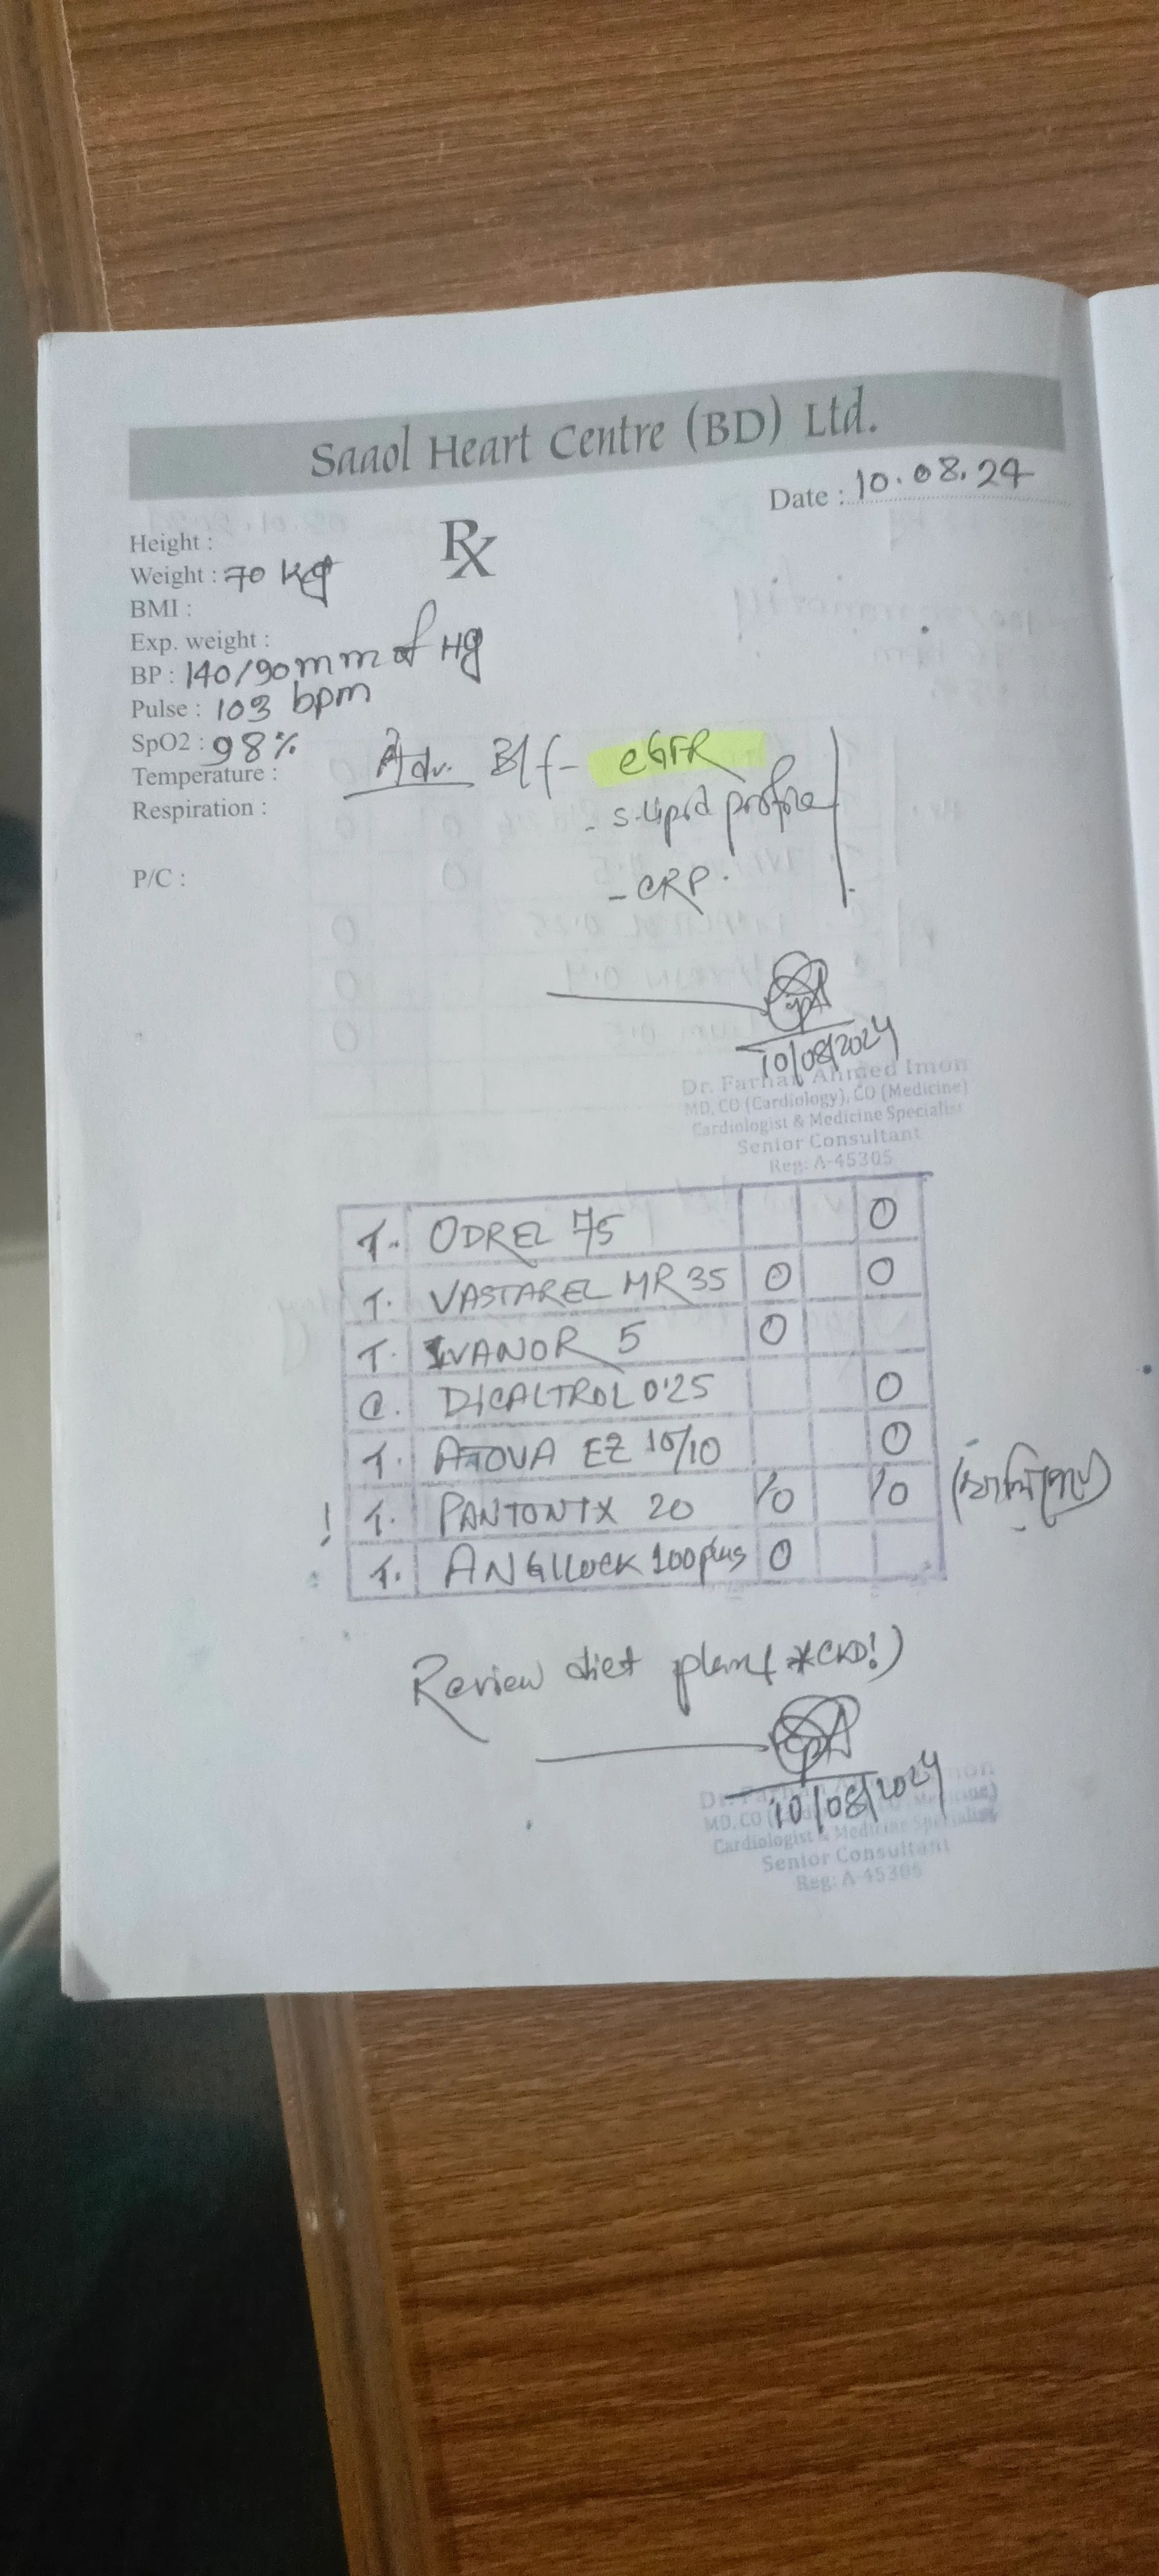 Saaol Heart Centre (BD) Ltd.
Date : 10.08.24
Rx
Height :
Weight : 70 kg
BMI :
Exp. weight :
BP : 140/90 mm of Hg
Pulse : 103 bpm
SpO2 : 98%
Temperature :
Respiration :
P/C :
Adv. B/f - eGFR
- S. Lipid profile
- CRP.
10/08/2024
Dr. Farhan Ahmed Imon
MD, CO (Cardiology), CO (Medicine)
Cardiologist & Medicine Specialist
Senior Consultant
Reg: A-45305
T. ODREL 75 0
T. VASTAREL MR 35 0 0
T. IVANOR 5 0
C. DICALTROL 0.25 0
T. ATOVA EZ 10/10 0
! T. PANTONIX 20 1/0 1/0 (খালিপেটে)
T. ANGILOCK 100 plus 0
Review diet plan (*CKD!)
10/08/2024
MD, CO
Cardiologist & Medicine Specialist
Senior Consultant
Reg: A-45305